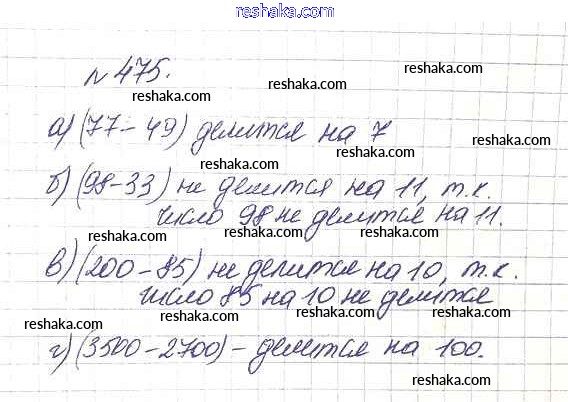 reshaka.com
№ 475.
reshaka.com reshaka.com
reshaka.com
а) (77 - 49) делится на 7
reshaka.com
reshaka.com
б) (98-33) не делится на 11, т.к.
reshaka.com
число 98 не делится на 11.
reshaka.com reshaka.com
в) (200 - 85) не делится на 10, т.к.
число 85 на 10 не делится
reshaka.com reshaka.com
reshaka.com
г) (3500 - 2700) - делится на 100.
reshaka.com